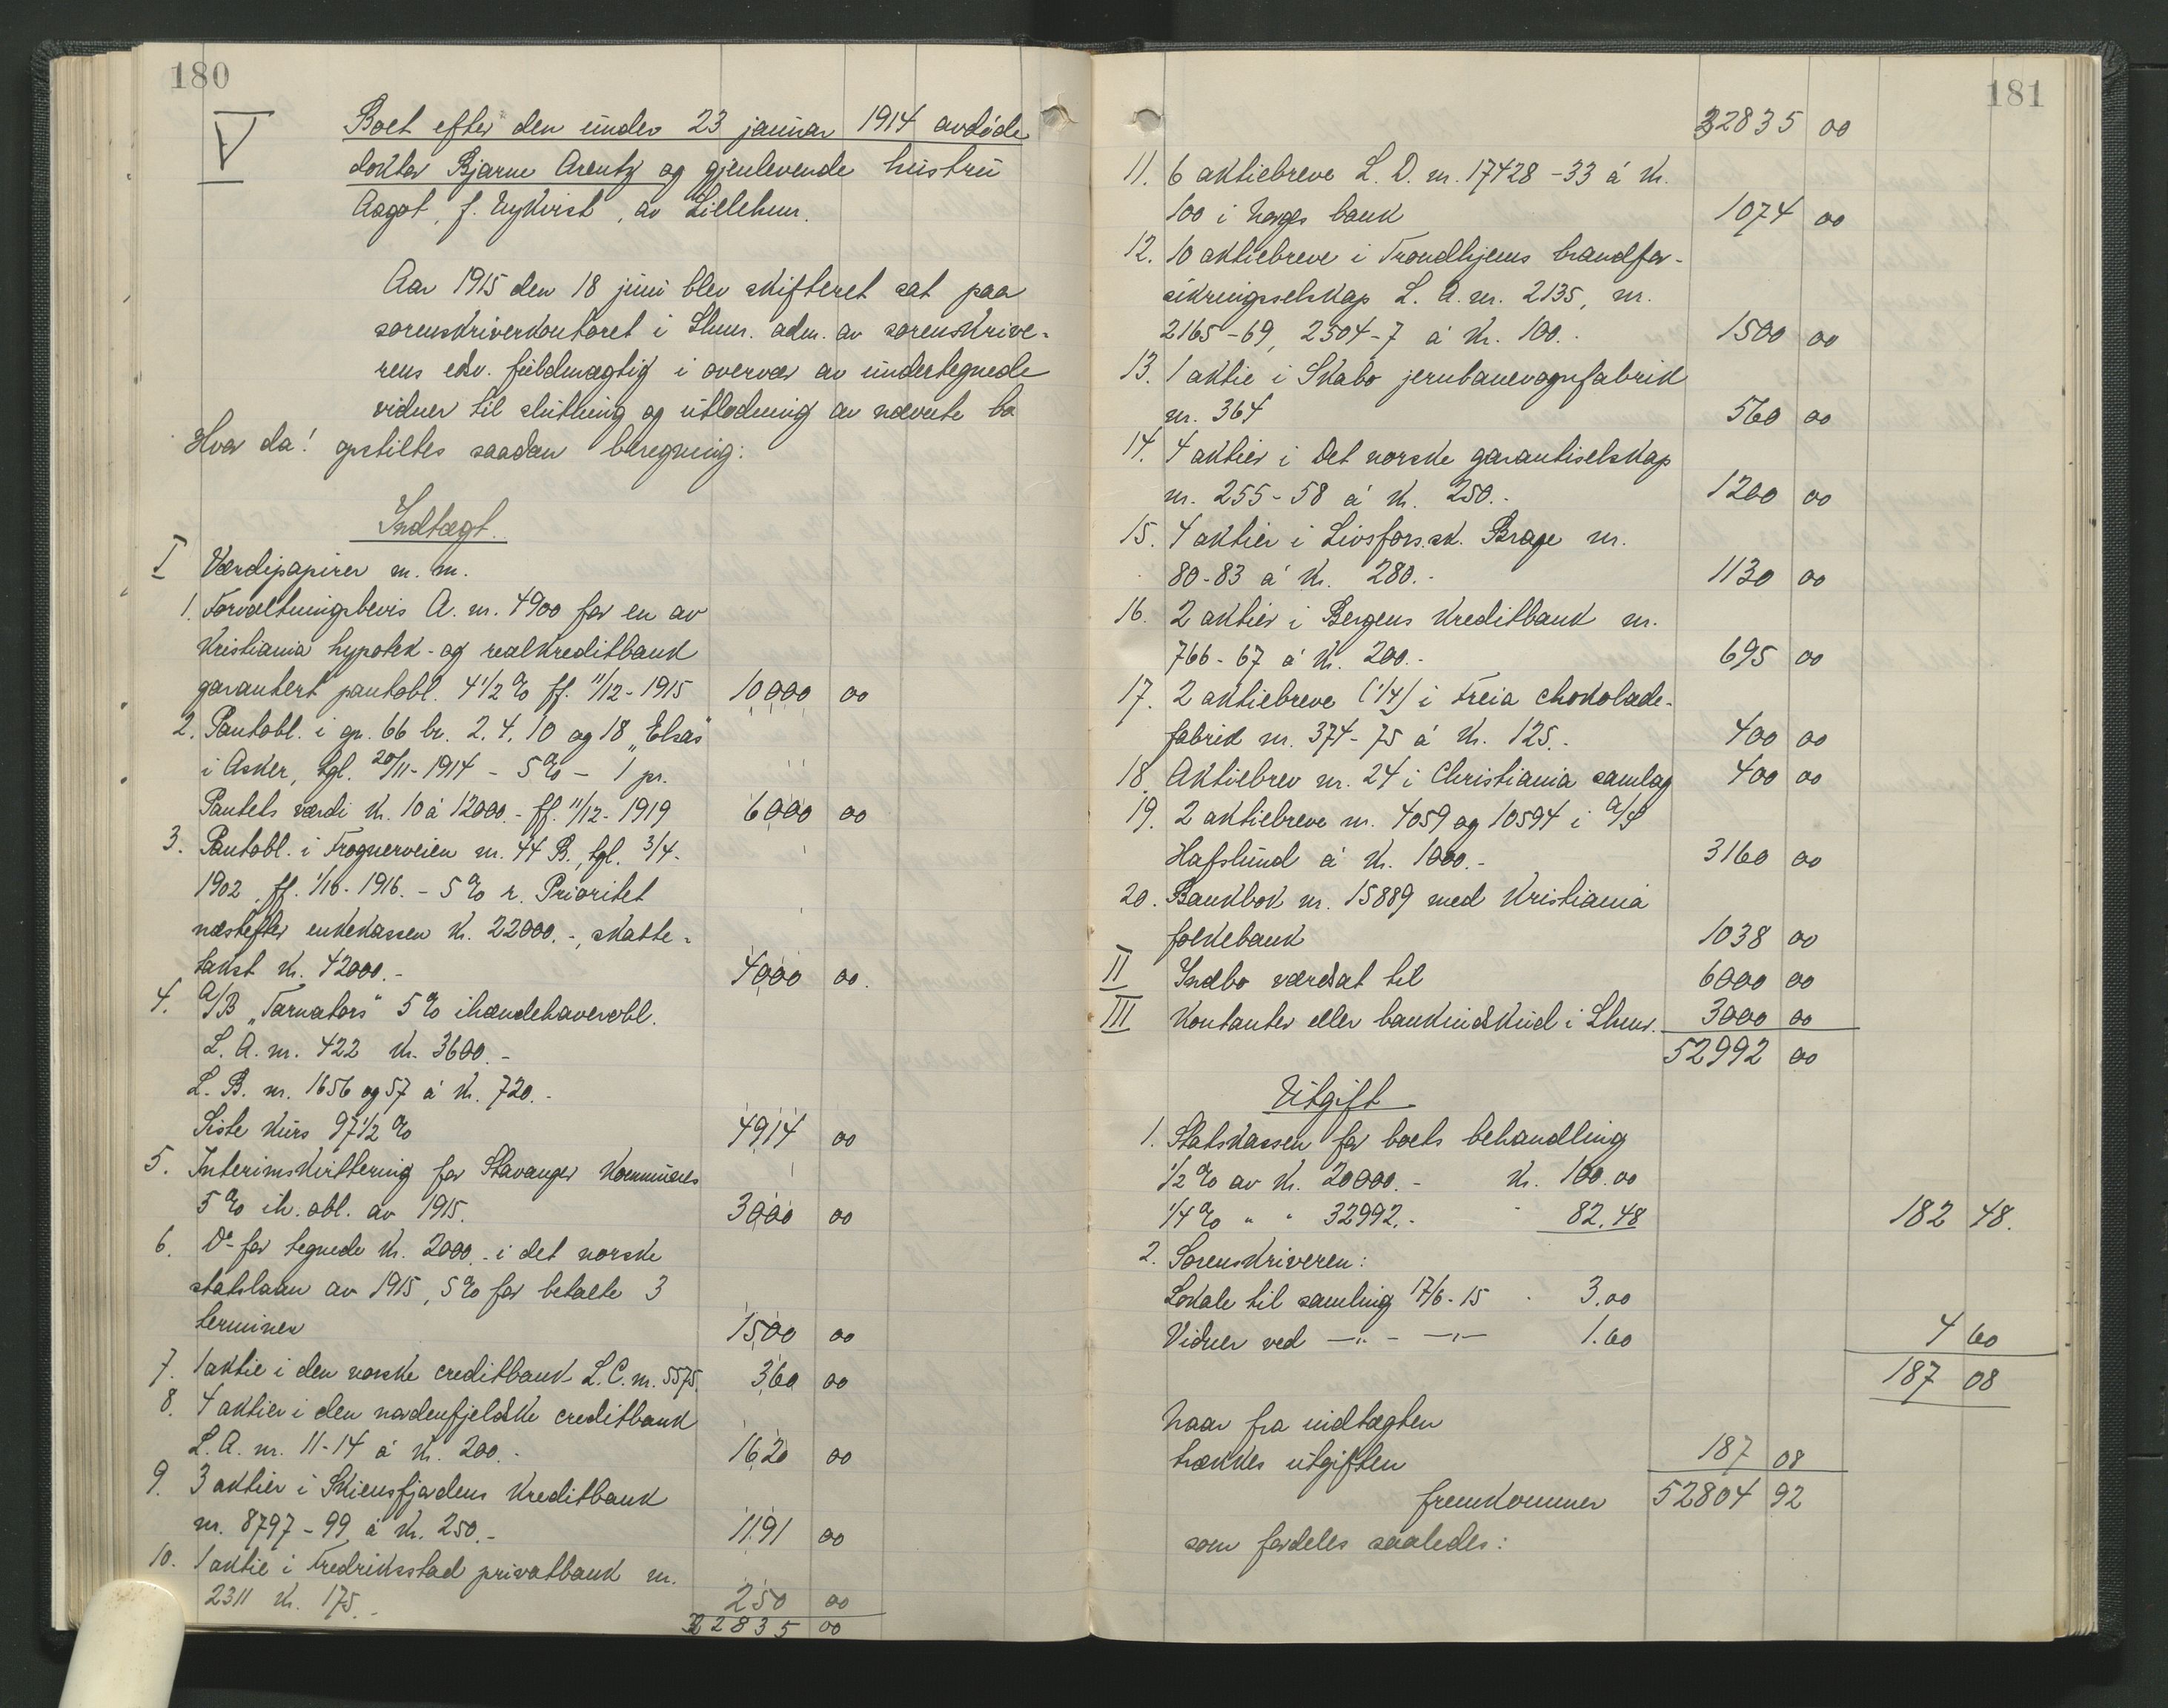 180
V
Boet efter den under 23 januar 1914 avdøde
doktor Bjarne Arentz og gjenlevende hustru
Aagot, f. Nykvist, av Lillehmr.
Aar 1915 den 18 juni blev skifteret sat paa
sorenskriverkontoret i Lhmr. adm. av sorenskrive-
rens edsv. fuldmægtig i overvær av undertegnede
vidner til slutning og utlodning av nævnte bo
Hvor da! opstiltes saadan beregning:
Indtægt.
I Værdipapirer m. m.
1. Forvaltningsbevis A. nr. 4900 for en av
Kristiania hypotek- og realkreditbank
garantert pantobl. 4 1/2 % ff. 11/12-1915 10000 00
2. Pantobl. i gr. 66 br. 2. 4. 10 og 18 „Elsas"
i Asker, tgl. 20/11-1914 - 5 % - 1 pr.
Pantets værdi kr. 10 à 12000.- ff. 11/12-1919 6000 00
3. Pantobl. i Frognerveien nr. 44 B., tgl. 3/4-
1902, ff. 1/10-1916. - 5 % r. Prioritet
næstefter enkekassen kr. 22000.-, skatte-
takst kr. 42000.- 4000 00.
4. A/B „Tarnators" 5 % ihændehaverobl.
L. A. nr. 422 kr. 3600.-
L. B. nr. 1656 og 57 à kr. 720.-
Siste kurs 97 1/2 % 4914 00
5. Interimskvittering for Stavanger kommunes
5 % ih. obl. av 1915. 3000 00
6. Do for tegnede kr. 2000.- i det norske
statslaan av 1915, 5 % for betalte 3
terminer 1500 00
7. 1 aktie i den norske creditbank L. C. nr. 5575. 360 00
8. 4 aktier i den nordenfjeldske creditbank
L. A. nr. 11-14 à kr. 200.- 1620 00
9. 3 aktier i Skiensfjordens kreditbank
nr. 8797-99 à kr. 250.- 1191 00
10. 1 aktie i Fredriksstad privatbank nr.
2311 kr. 175.- 250 00
32835 00
181
32835 00
11. 6 aktiebreve L. D. nr. 17428-33 à kr.
100 i Norges bank 1074 00
12. 10 aktiebreve i Trondhjems brandfor-
sikringsselskap L. A. nr. 2135, nr.
2165-69, 2504-7 à kr. 100.- 1500 00
13. 1 aktie i Skabo jernbanevognfabrik
nr. 364 560 00
14. 4 aktier i Det norske garantiselskap
nr. 255-58 à kr. 250.- 1200 00
15. 4 aktier i Livsfors.sk. Brage nr.
80-83 à kr. 280.- 1130 00
16. 2 aktier i Bergens Kreditbank nr.
766-67 à kr. 200.- 695 00
17. 2 aktiebreve (1/4) i Freia chokolade-
fabrik nr. 374-75 à kr. 125.- 400 00
18. Aktiebrev nr. 24 i Christiania samlag 400 00
19. 2 aktiebreve nr. 4059 og 10594 i A/S
Hafslund à kr. 1000.- 3160 00
20. Bankbok nr. 15889 med Kristiania
folkebank 1038 00
II Indbo værdsat til 6000 00
III Kontanter eller bankindskud i Lhmr. 3000 00
52992 00
Utgift
1. Statskassen for boets behandling
1/2 % av kr. 20000.- kr. 100.00
1/4 % " " 32992.- " 82.48 182 48.
2. Sorenskriveren:
Lokale til samling 17/6-15 - 3.00
Vidner ved —"- —"— 1.60 4 60
187 08
Naar fra indtægten
trækkes utgiften 187 08
fremkommer 52804 92
som fordeles saaledes: